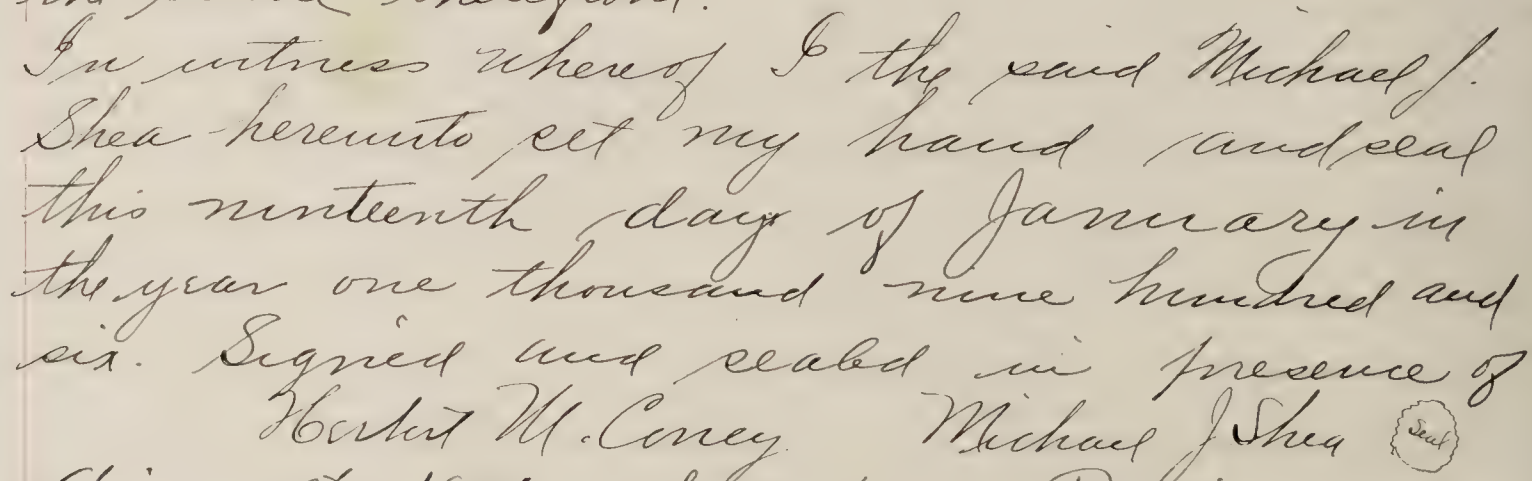 In witness whereof I the said Michael J.
Shea hereunto set my hand and seal
this ninteenth day of January in
the year one thousand nine hundred and
six. Signed and sealed in presence of
Herbert M. Coney. Michael J Shea Seal